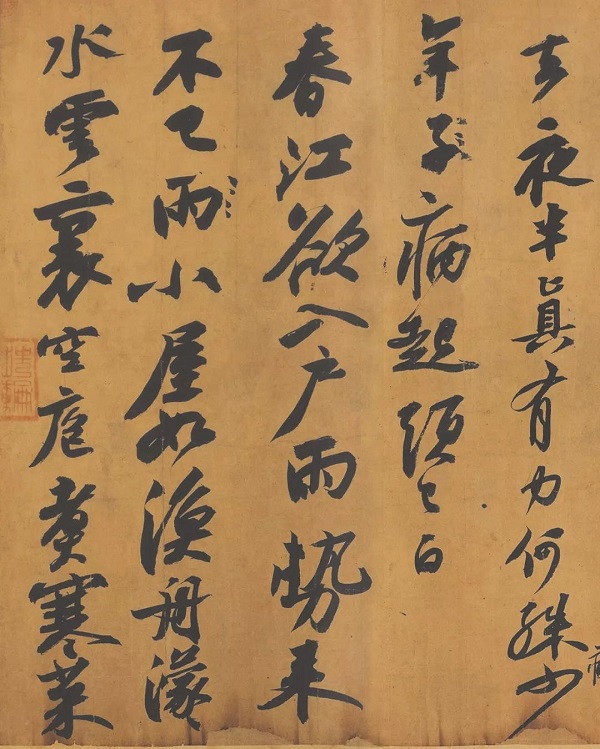 去夜半真有力何殊少
年子病起頭已白
春江欲入戶雨勢来
不已雨小屋如漁舟濛々
水雲裏空庖煮寒菜